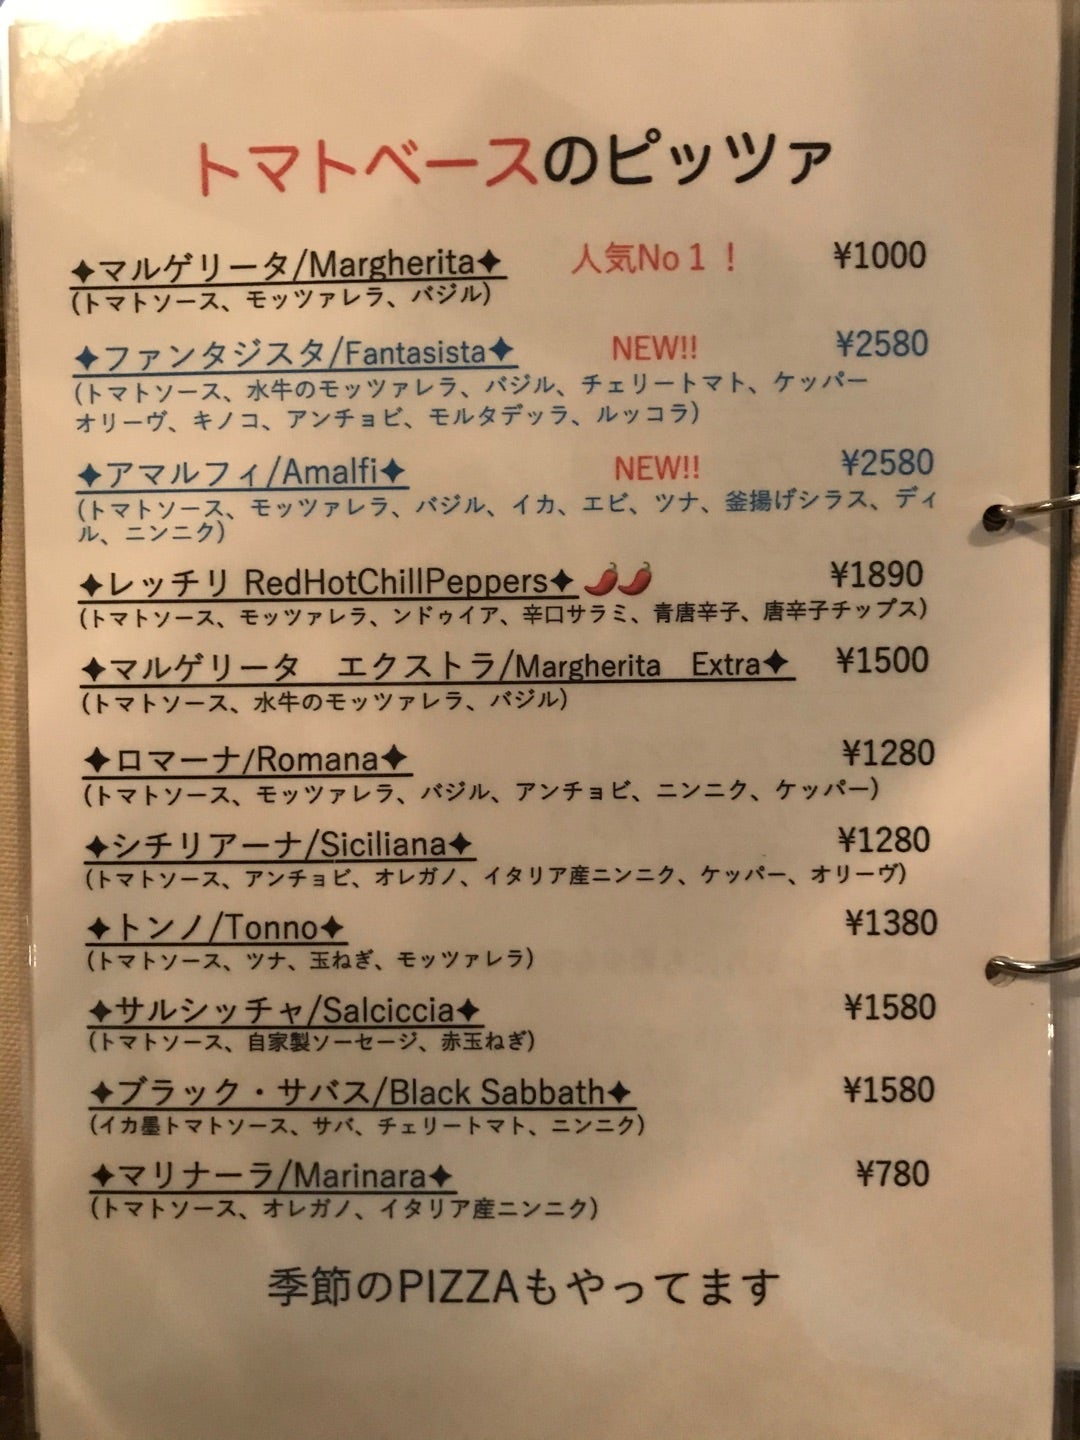 トマトベースのピッツァ
✦マルゲリータ/Margherita✦ 人気No１！ ¥1000
(トマトソース、モッツァレラ、バジル)
✦ファンタジスタ/Fantasista✦ NEW!! ¥2580
(トマトソース、水牛のモッツァレラ、バジル、チェリートマト、ケッパー
オリーヴ、キノコ、アンチョビ、モルタデッラ、ルッコラ)
✦アマルフィ/Amalfi✦ NEW!! ¥2580
(トマトソース、モッツァレラ、バジル、イカ、エビ、ツナ、釜揚げシラス、ディ
ル、ニンニク)
✦レッチリ RedHotChillPeppers✦🌶🌶 ¥1890
(トマトソース、モッツァレラ、ンドゥイア、辛口サラミ、青唐辛子、唐辛子チップス)
✦マルゲリータ　エクストラ/Margherita　Extra✦ ¥1500
(トマトソース、水牛のモッツァレラ、バジル)
✦ロマーナ/Romana✦ ¥1280
(トマトソース、モッツァレラ、バジル、アンチョビ、ニンニク、ケッパー)
✦シチリアーナ/Siciliana✦ ¥1280
(トマトソース、アンチョビ、オレガノ、イタリア産ニンニク、ケッパー、オリーヴ)
✦トンノ/Tonno✦ ¥1380
(トマトソース、ツナ、玉ねぎ、モッツァレラ)
✦サルシッチャ/Salciccia✦ ¥1580
(トマトソース、自家製ソーセージ、赤玉ねぎ)
✦ブラック・サバス/Black Sabbath✦ ¥1580
(イカ墨トマトソース、サバ、チェリートマト、ニンニク)
✦マリナーラ/Marinara✦ ¥780
(トマトソース、オレガノ、イタリア産ニンニク)
季節のPIZZAもやってます